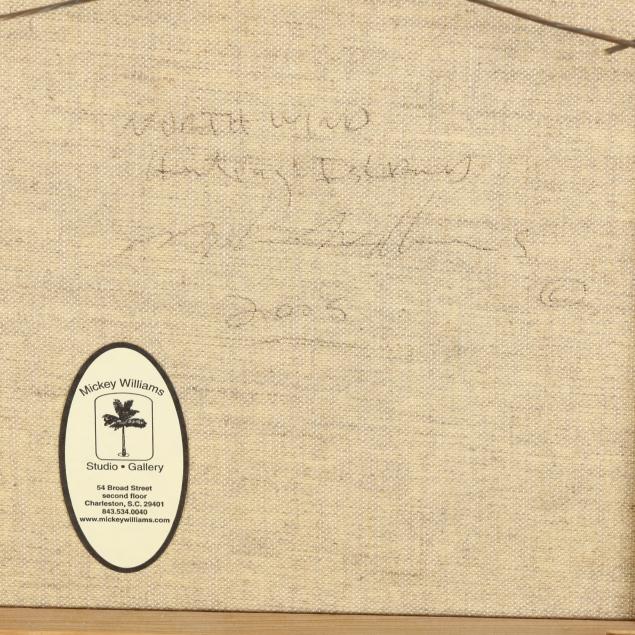 NORTH WIND
Hunting Island
Mickey Williams
©
2005
Mickey Williams
Studio • Gallery
54 Broad Street
second floor
Charleston, S.C. 29401
843.534.0040
www.mickeywilliams.com